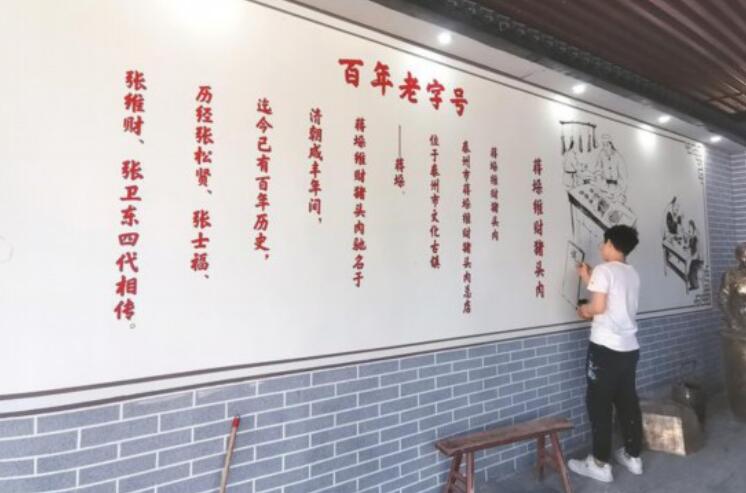 百年老字号
蒋垛维财猪头肉
蒋垛维财猪头肉
泰州市蒋垛维财猪头肉总店
位于泰州市文化古镇
——蒋垛.
蒋垛维财猪头肉驰名于
清朝咸丰年间,
迄今已有百年历史,
历经张松贤、张士福、
张维财、张卫东四代相传。